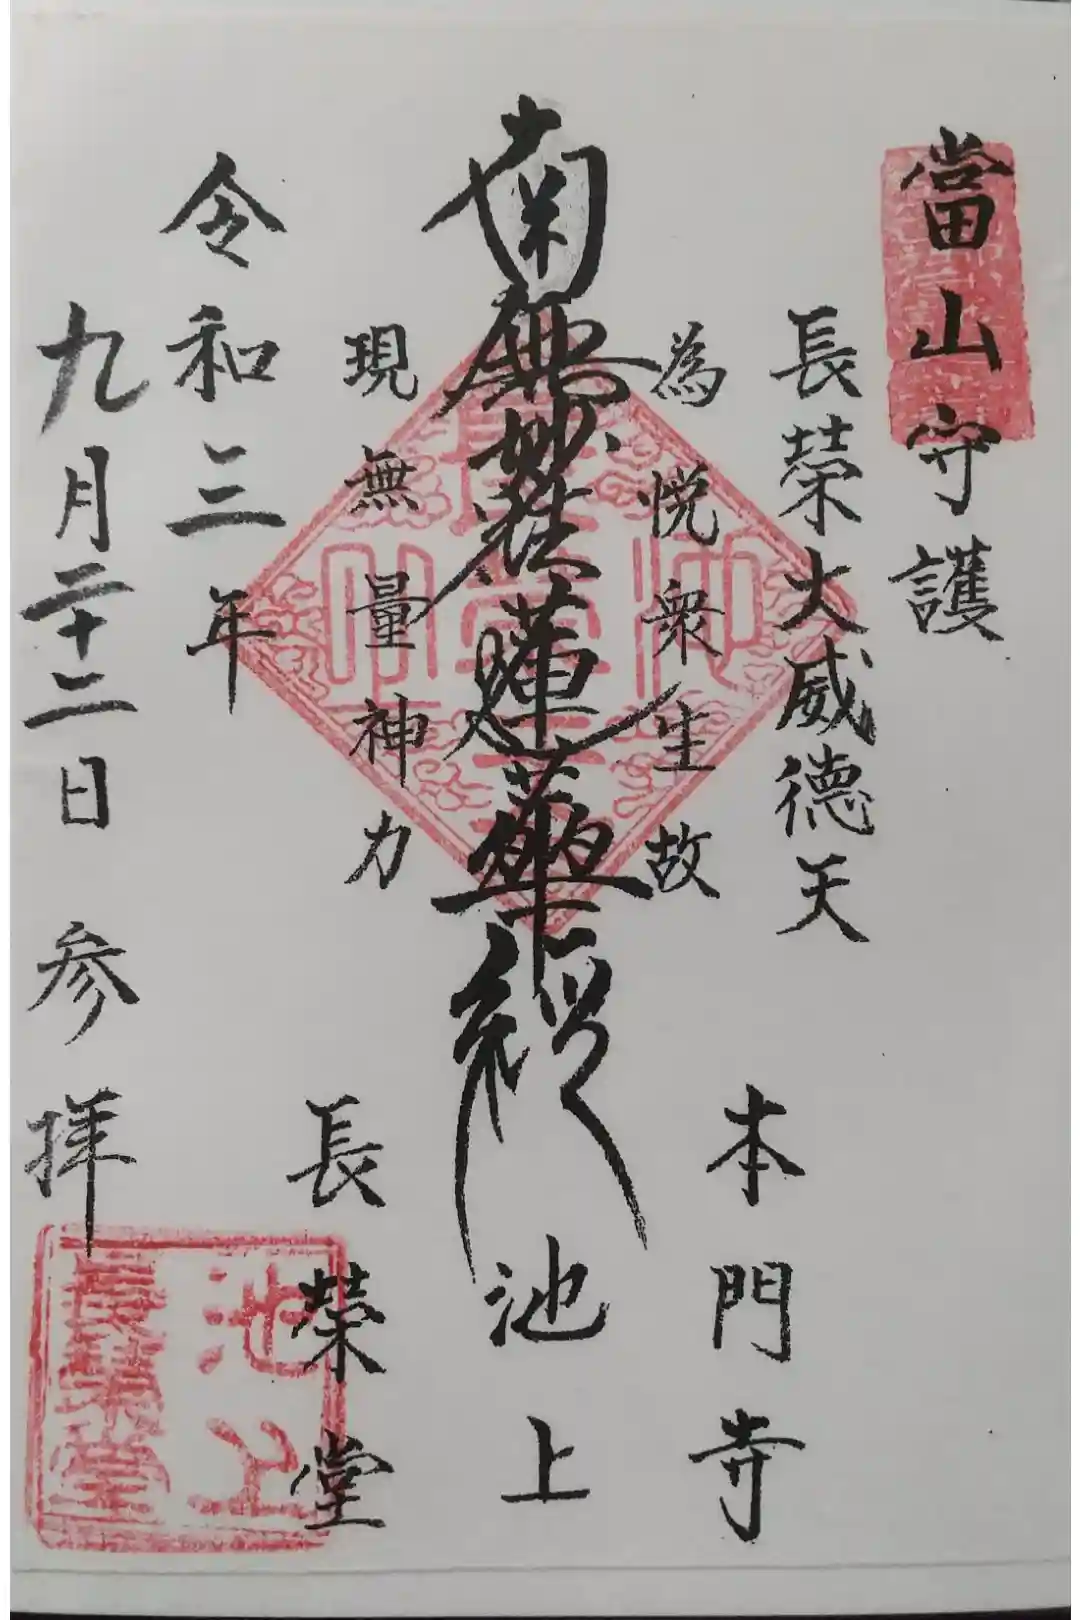 當山守護
長榮大威徳天
為悦衆生故
南無妙法蓮華経
現無量神力
令和三年
九月二十二日 参拝
本門寺
池上
長榮堂
池上
長榮堂